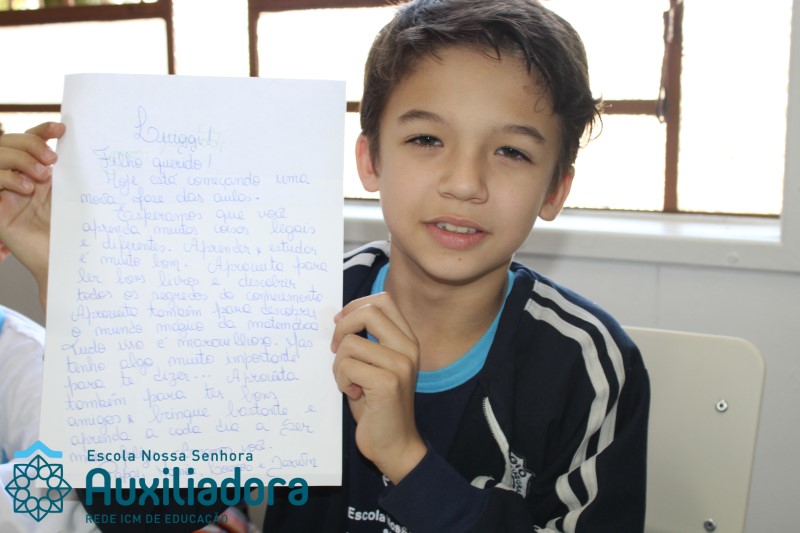 Filho querido!
Hoje está começando uma
nova fase das aulas.
Esperamos que você
aprenda muitas coisas legais
e diferentes. Aprender e estudar
é muito bom. Aproveita para
ler bons livros e descobrir
todos os segredos do conhecimento
Aproveita também para descobrir
o mundo mágico da matemática
Tudo isso é maravilhoso. Mas
tenho algo muito importante
para te dizer... Aproveita
também para ter bons
amigos, brinque bastante e
aprenda a cada dia a ser
Escola Nossa Senhora
Auxiliadora
REDE ICM DE EDUCAÇÃO
Escola Nossa